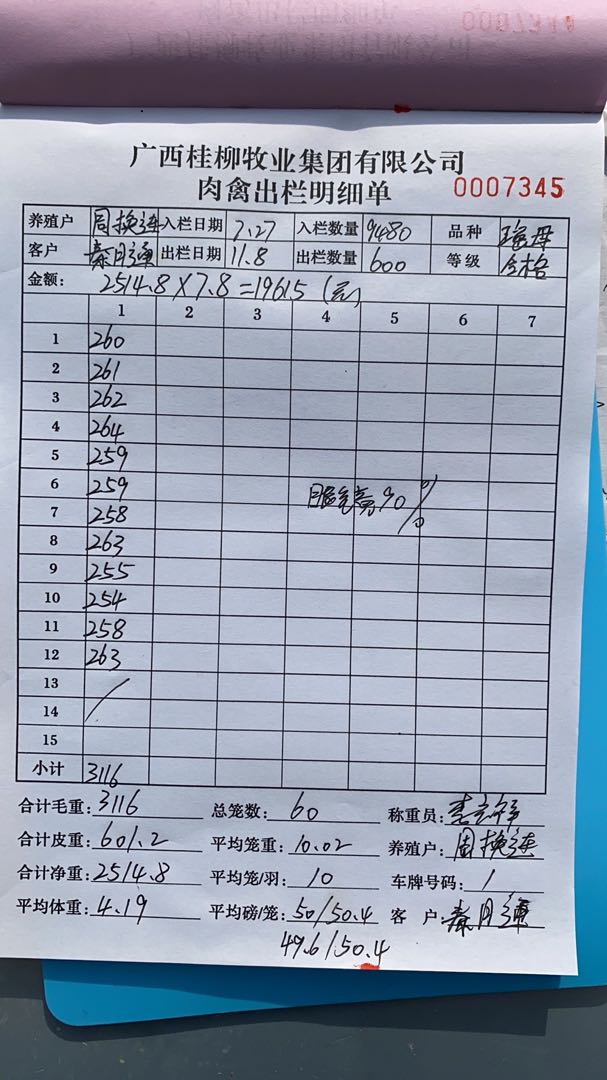 0007344
广西桂柳牧业集团有限公司
肉禽出栏明细单 0007345
养殖户 周换连 入栏日期 7.27 入栏数量 9480 品种 瑶母
客户 秦月通 出栏日期 11.8 出栏数量 600 等级 合格
金额: 2514.8×7.8=19615(元)
1 2 3 4 5 6 7
1 260
2 261
3 262
4 264
5 259
6 259
7 258
8 263
9 255
10 254
11 258
12 263
13
14
15
90%
小计 3116
合计毛重: 3116 总笼数: 60 称重员:
合计皮重: 601.2 平均笼重: 10.02 养殖户: 周换连
合计净重: 2514.8 平均笼/羽: 10 车牌号码: 1
平均体重: 4.19 平均磅/笼: 50/50.4 客户 秦月通
49.6/50.4